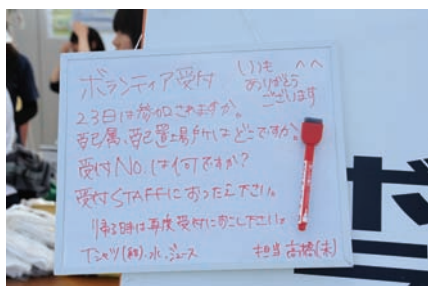 ボランティア受付
いつも ヘヘ
ありがとう
ございます
23日は参加されますか。
配属、配置場所はどこですか。
受付No.は何ですか?
受付STAFFにおつたえ下さい。
帰る時は再度受付におこし下さい。
Tシャツ(   )、水、ジュース
担当 高橋(未)